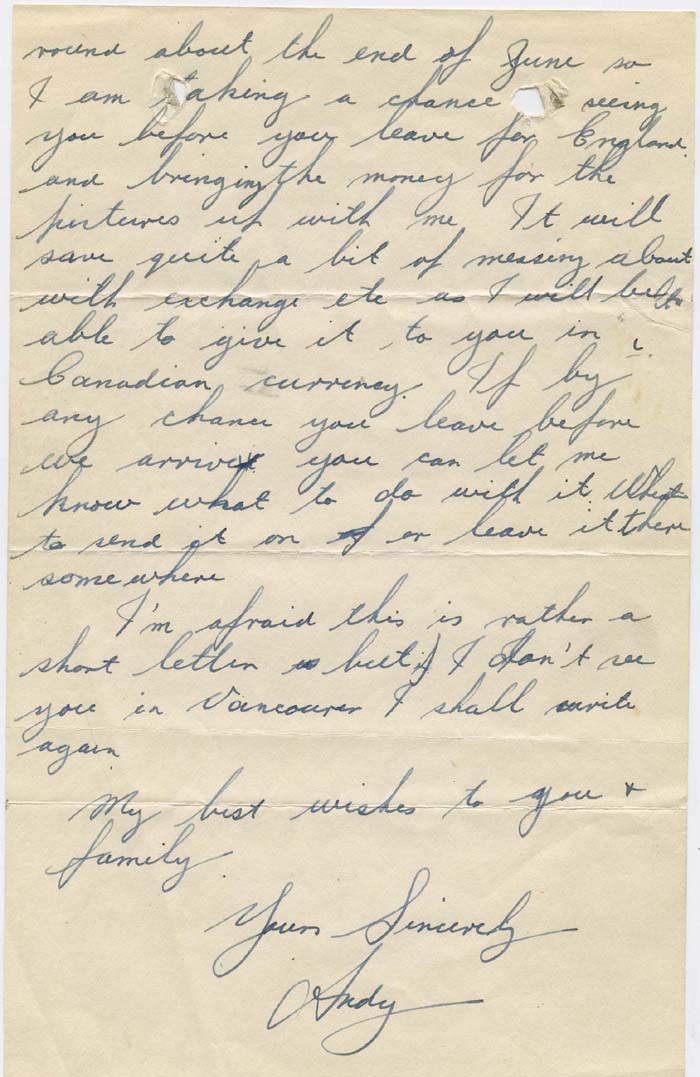 round about the end of June so
I am taking a chance seeing
you before you leave for England.
and bringing the money for the
pictures up with me It will
save quite a bit of messing about
with exchange etc as I will be
able to give it to you in
Canadian currency. If by
any chance you leave before
we arrive you can let me
know what to do with it. Whet
to send it on or leave it there
somewhere
I'm afraid this is rather a
short letter but if I don't see
you in Vancouver I shall write
again
My best wishes to you +
family.
Yours Sincerely
Andy